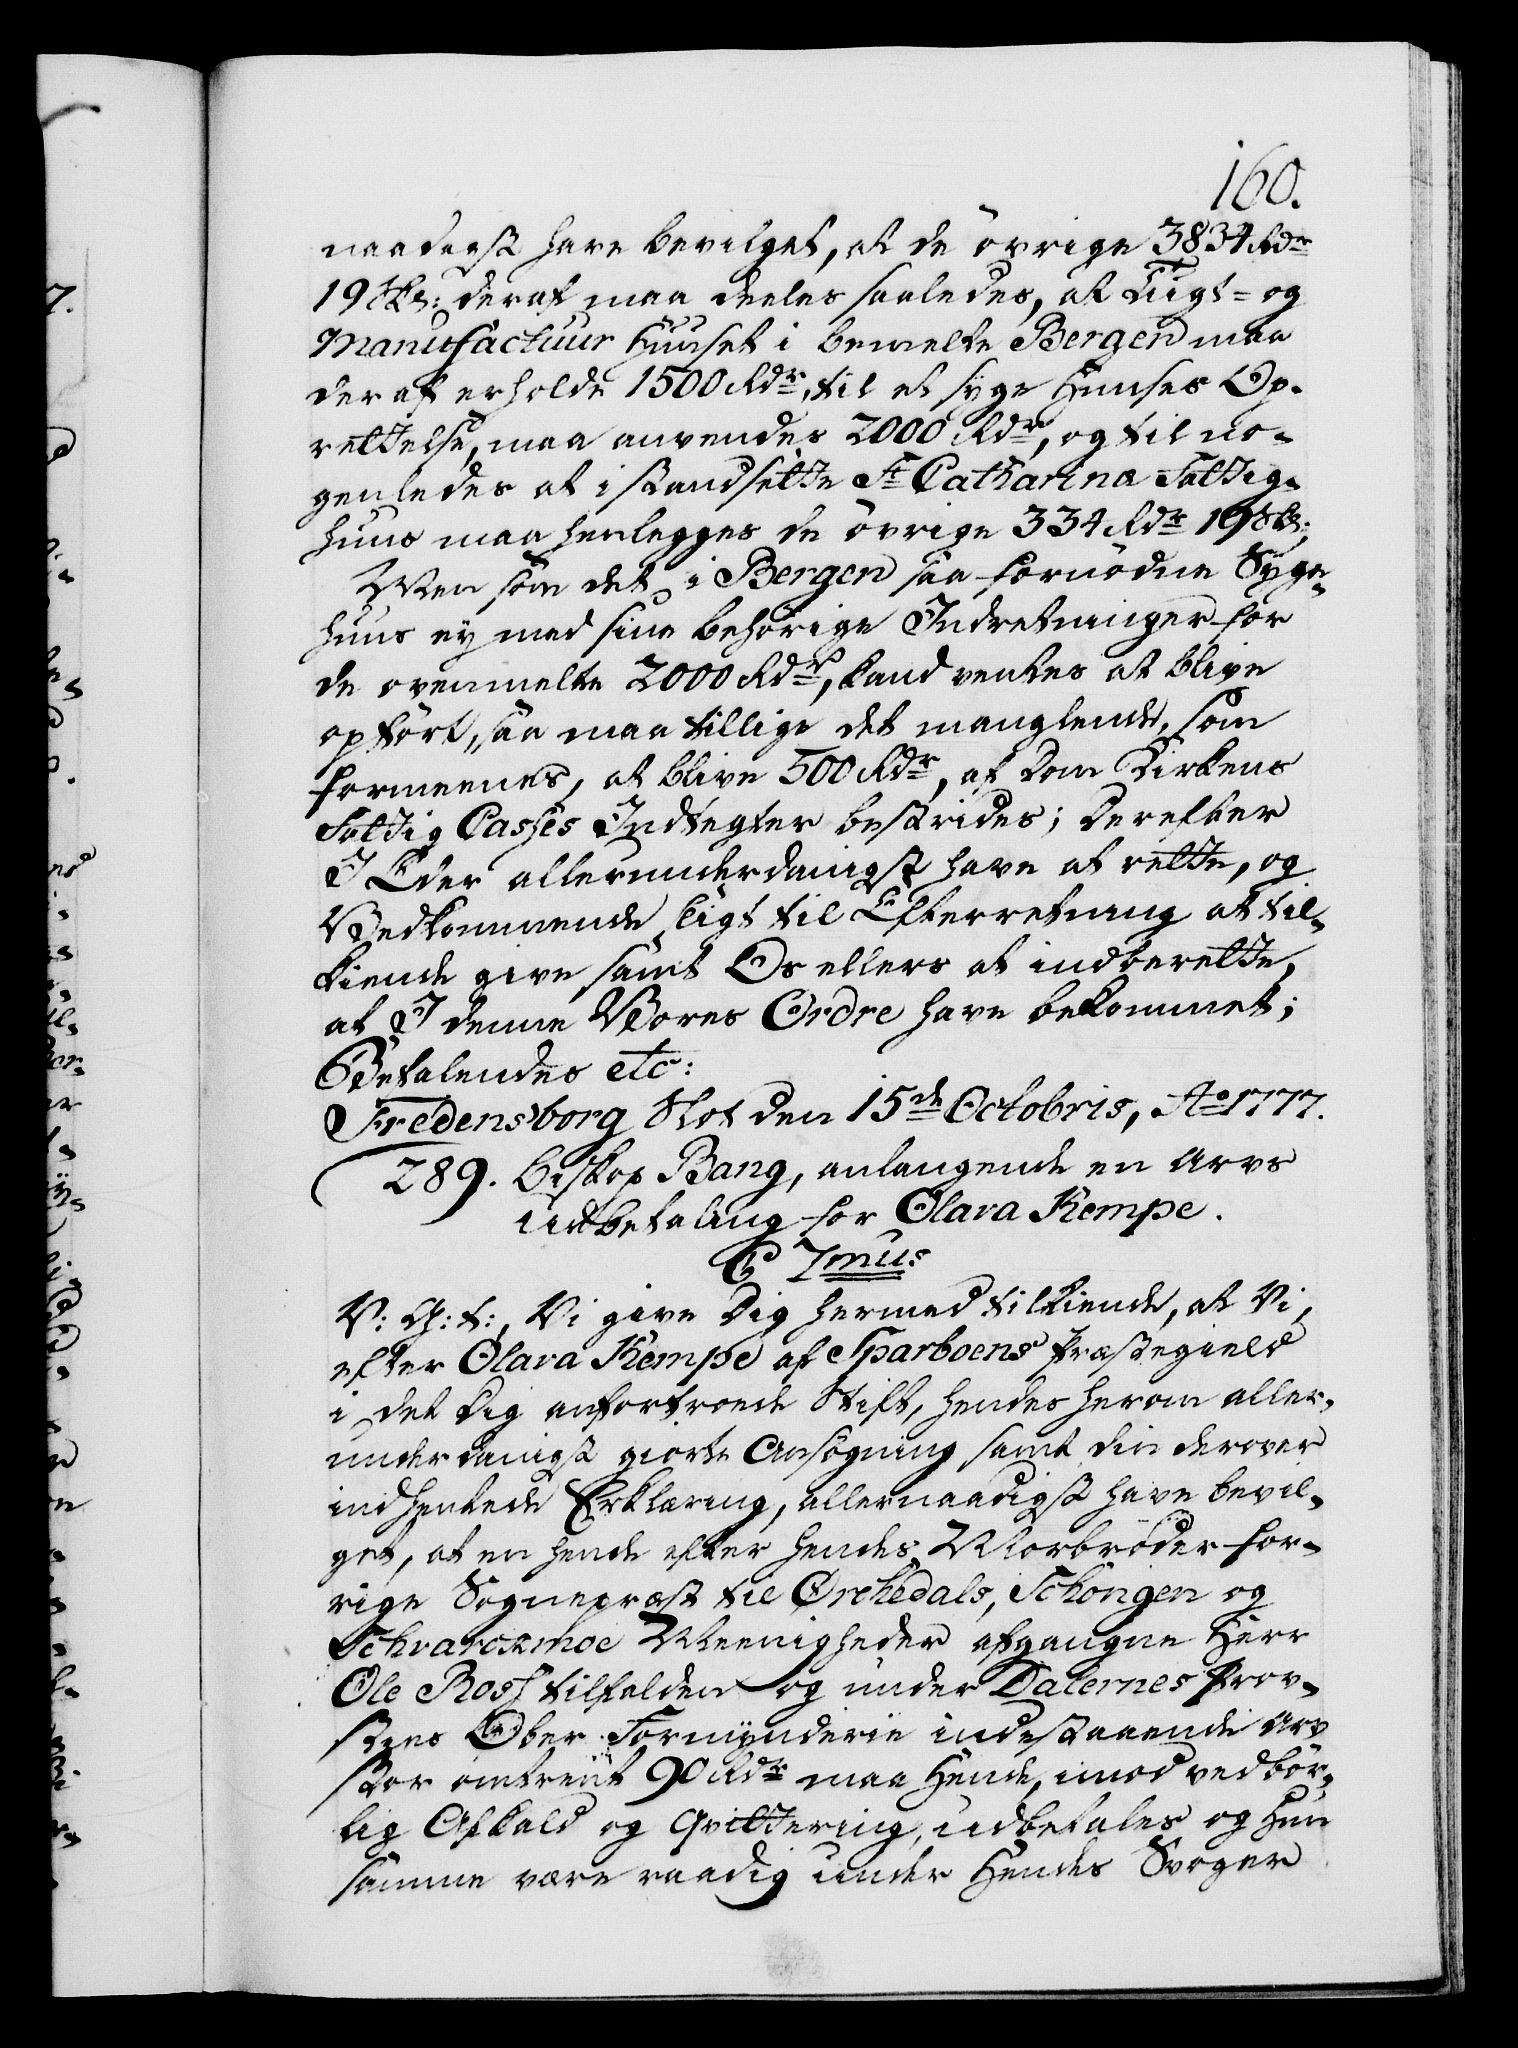 160.
naadigst have bevilget, at de övrige 3834 Rdr
19 skl: deraf maa deeles saaledes, at Tugt= og
Manufactuur Huuset i bemelte Bergen maa
deraf erholde 1500 Rdr, til et syge Huuses Op-
rettelse, maa anvendes 2000 Rdr, og til no-
genledes at istandsette St Catharina Fattig-
huus maa henlegges de övrige 334 Rdr 19 skl:
Men som det i Bergen saa fornödne Syge-
huus ey med sine behörige Indretninger for
de ovenmelte 2000 Rdr, kand ventes at blive
opfört, saa maa tillige det manglende, som
formeenes, at blive 500 Rdr, af Dom Kirkens
Fattig Casses Indtegter bestrides; Derefter
I Eder allerunderdanigst have at rette, og
Vedkommende sligt til Efterretning at til-
kiende give samt Os ellers at indberette,
at I denne Vores Ordre have bekommet;
Befalendes etc:
Fredensborg Slot den 15de Octobris, Ao 1777.
289. Biskop Bang, anlangende en Arvs
Udbetaling for Olava Kempe.
C 7mus
V: G: t:, Vi give Dig hermed tilkiende, at Vi,
efter Olava Kempe af Sparboens Præstegield
i det Dig anfortroede Stift, hendes herom aller-
underdanigst giorte Ansögning samt din derover
indhentede Erklæring, allernaadigst have bevil-
get, at en hende efter hendes Morbröder for-
rige Sognepræst til Orchedals, Schöngen og
Schvarczmoe Meenigheder afgangne Herr
Ole Ross tilfalden og under Dalernes Prov-
stes Ober-Formynderie indestaaende Arv
stor omtrent 90 Rdr maa Hende, imod vedbör-
lig Afkald og Qvittering, udbetales og Hun
samme være raadig under Hendes Svoger